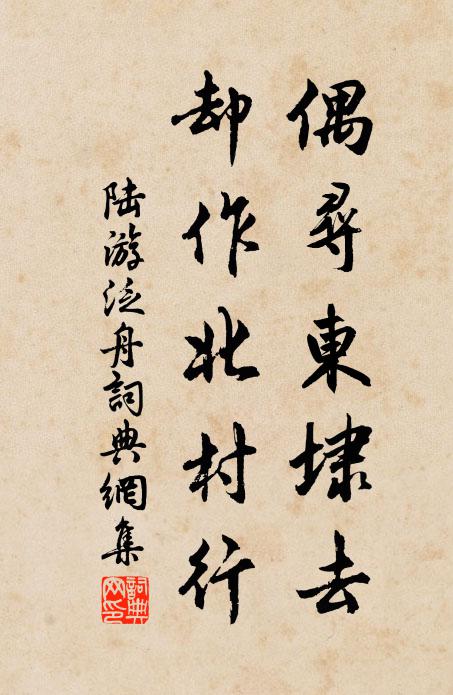 偶尋東埭去
却作北村行
陸游泛舟詞典網集
詞典網印